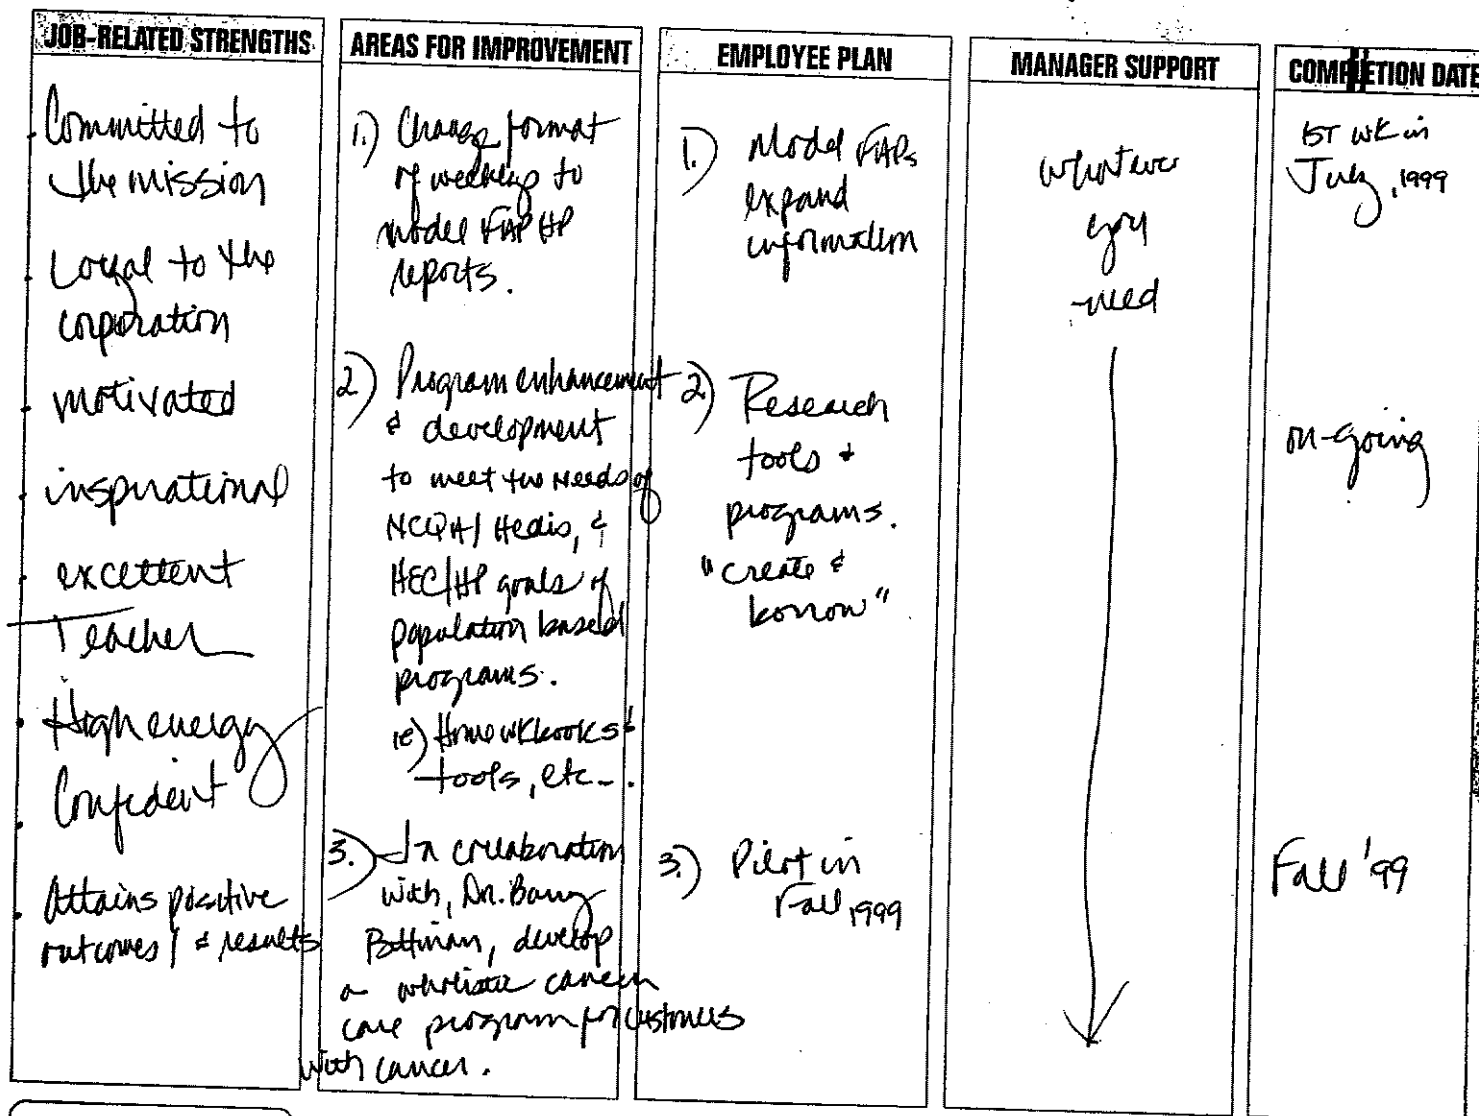 JOB-RELATED STRENGTHS
· Committed to
the mission
· Loyal to the
corporation
· motivated
· inspirational
· excellent
Teacher
· High energy
· Confident
· Attains positive
outcomes / & results
AREAS FOR IMPROVEMENT
1.) Change format
of weeklys to
model FIAP HP
reports.
2) Program enhancement
& development
to meet the needs of
NCQA/ Hedis, &
HEC/HP goals of
population based
programs.
ie) Home wkbooks &
tools, etc.
3.) In collaboration
with, Dr. Barry
develop
a wholistic cancer
care program for customers
with cancer.
EMPLOYEE PLAN
1.) Model FIAPs
expand
information
2) Research
tools &
programs.
"create &
borrow"
3.) Pilot in
Fall 1999
MANAGER SUPPORT
whatever
you
need
COMPLETION DATE
1ST WK in
July, 1999
on-going
Fall '99